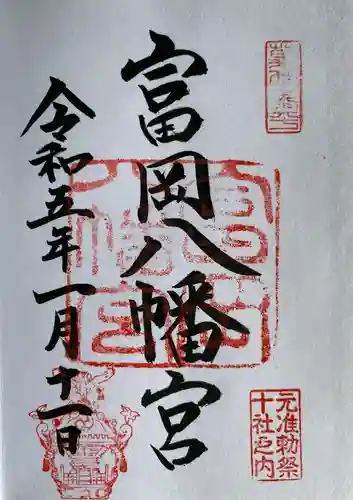 富岡八幡宮
令和五年一月十一日
元准勅祭
十社之内